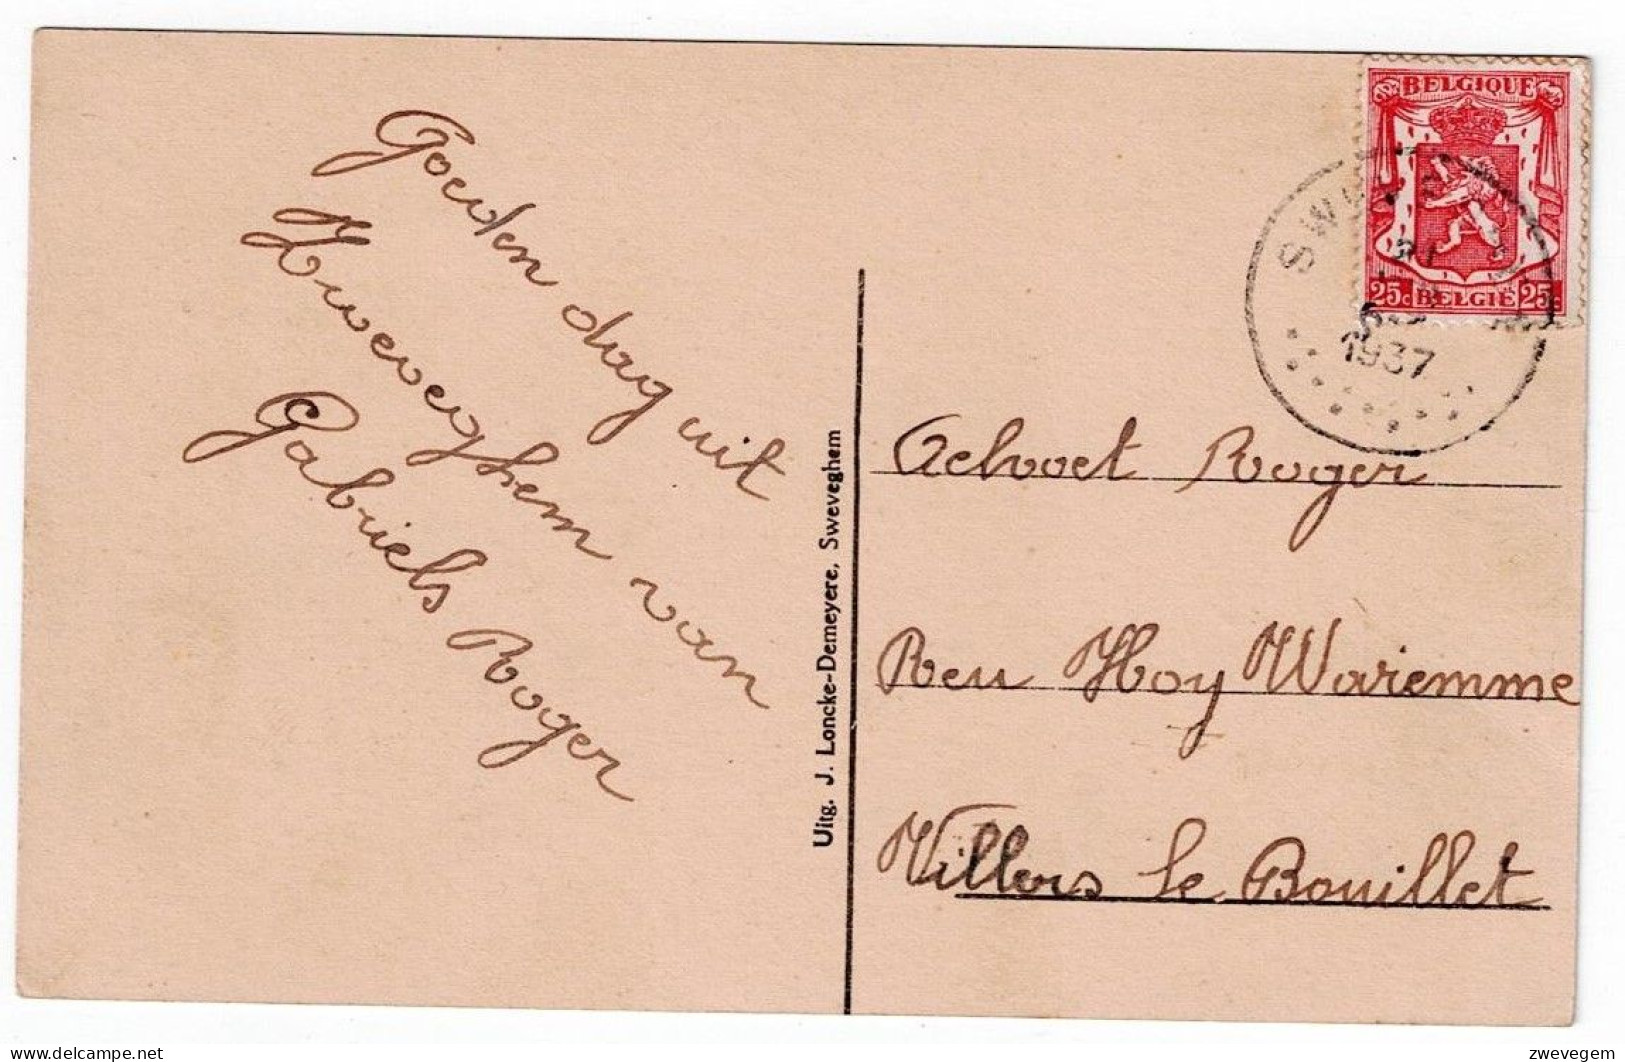 Goeden dag uit
Zweveghem van
Gabriels Roger
Uitg. J. Loncke-Demeyere, Sweveghem
BELGIQUE
25c BELGIË 25c
1937
Aelvoet Roger
Reu Hoy Waremme
Villers le Bouillet
delcampe.net
zwevegem